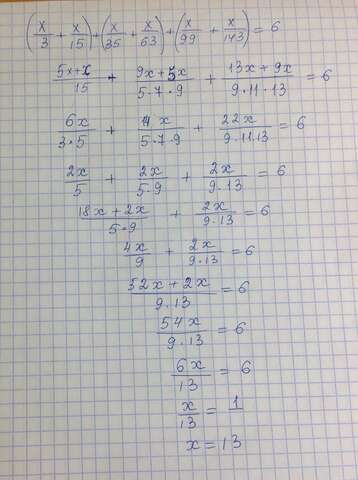 (x/3 + x/15) + (x/35 + x/63) + (x/99 + x/143) = 6
5x+x/15 + 9x+5x/5·7·9 + 13x+9x/9·11·13 = 6
6x/3·5 + 14x/5·7·9 + 22x/9·11·13 = 6
2x/5 + 2x/5·9 + 2x/9·13 = 6
18x+2x/5·9 + 2x/9·13 = 6
4x/9 + 2x/9·13 = 6
52x+2x/9·13 = 6
54x/9·13 = 6
6x/13 = 6
x/13 = 1
x = 13